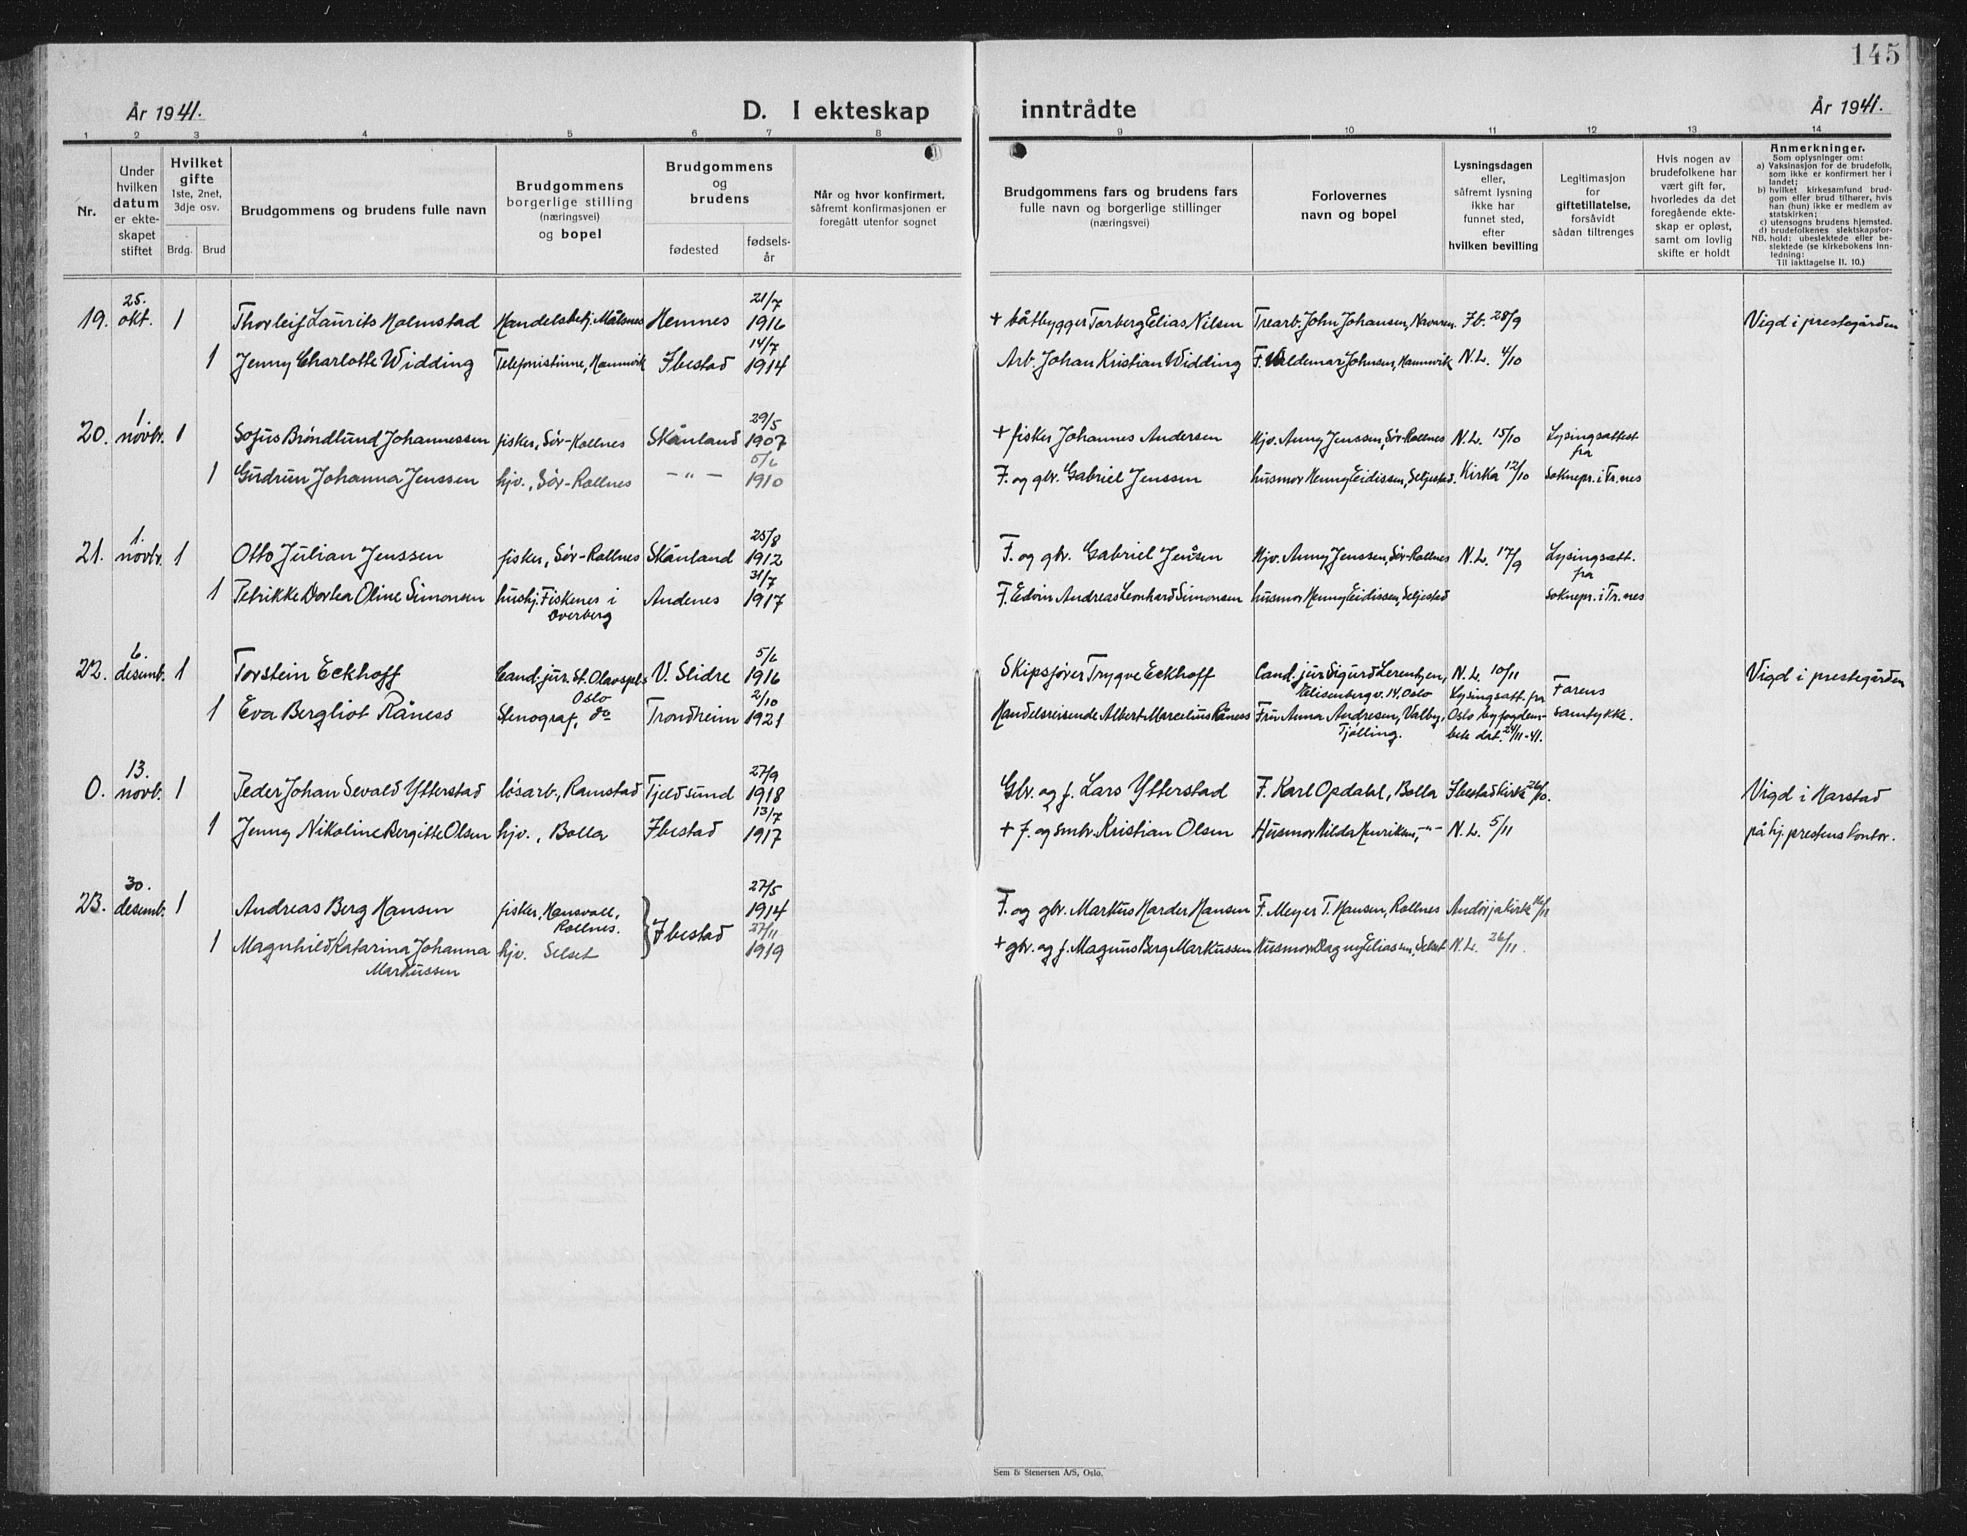 145
År 1941.
D. I ekteskap inntrådte
År 1941.
1 2 3 4 5 6 7 8 9 10 11 12 13 14
Nr.
Under hvilken datum er ekteskapet stiftet
Hvilket gifte 1ste, 2net, 3dje osv.
Brdg. Brud
Brudgommens og brudens fulle navn
Brudgommens borgerlige stilling (næringsvei) og bopel
Brudgommens og brudens
fødested
fødsels-år
Når og hvor konfirmert, såfremt konfirmasjonen er foregått utenfor sognet
Brudgommens fars og brudens fars fulle navn og borgerlige stillinger (næringsvei)
Forlovernes navn og bopel
Lysningsdagen eller, såfremt lysning ikke har funnet sted, efter hvilken bevilling
Legitimasjon for giftetillatelse, forsåvidt sådan tiltrenges
Hvis nogen av brudefolkene har vært gift før, hvorledes da det foregående ekteskap er opløst, samt om lovlig skifte er holdt
Anmerkninger.
Som oplysninger om:
a) Vaksinasjon for de brudefolk, som ikke er konfirmert her i landet;
b) hvilket kirkesamfund brudgom eller brud tilhører, hvis han (hun) ikke er medlem av statskirken;
c) utensogns brudens hjemsted.
d) brudefolkenes slektskapsforhold: ubeslektede eller beslektede (se kirkebokens innledning:
NB. Til iakttagelse II. 10.)
19. 25. okt. 1 Thorleif Laurits Holmstad Handelsbetj. Målsnes Hemnes 21/7 1916 + båtbygger Torberg Elias Nilsen Trearb. John Johansen, Navaren. Fb. 28/9 Vigd i prestegården
1 Jenny Charlotte Widding Telefonistinne, Hamnvik Ibestad 14/7 1914 Arb. Johan Kristian Widding F. Valdemar Johnsen, Hamnvik N.L. 4/10
20. 1 novbr. 1 Sofus Brøndlund Johannessen fisker, Sør-Rollnes Skånland 29/5 1907 + fisker Johannes Andersen Hjv. Anny Jenssen, Sør-Rollnes N.L. 15/10 Lysingsattest fra
1 Gudrun Johanna Jenssen hjv., Sør-Rollnes — " — 5/6 1910 F. og gbr. Gabriel Jenssen husmor Henny Eidissen, Seljestad. Kirka 12/10 Soknepr. i Tr.nes
21. 1. novbr. 1 Otto Julian Jenssen fisker, Sør-Rollnes Skånland 25/8 1912 F. og gbr. Gabriel Jenssen Hjv. Anny Jenssen, Sør-Rollnes N.L. 17/9 Lysingsatt. fra
1 Petrikke Dortea Oline Simonsen hushj. Fiskenes i Överberg Andenes 31/7 1917 F. Edvin Andreas Leonhard Simonsen husmor Henny Eidissen, Seljestad Soknepr. i Tr.nes
22. 6. desemb. 1 Torstein Eckhoff Cand. jur. St. Olavspl. 5 Oslo V. Slidre 5/6 1916 Skipsfører Trygve Eckhoff Cand. jur Sigurd Lorentzen, Elisenbergv. 14. Oslo N.L. 10/11 Vigd i prestegården
1 Eva Bergliot Råness Stenograf, do Trondheim 2/10 1921 Handelsreisende Albert Marcelius Råness Fru Anna Andresen, Valby, Tjølling. Lysingsatt. fra Oslo byfogdembete dat. 24/11-41. Farens samtykke.
0. 13. novb. 1 Peder Johan Sevald Ytterstad løsarb., Ramstad Tjeldsund 27/9 1918 Gbr. og f. Lars Ytterstad F. Karl Opdahl, Bolla Ibestad kirke 26/10. Vigd i Harstad
1 Jenny Nikoline Bergitte Olsen hjv., Bolla Ibestad 13/7 1917 + f. og smbr. Kristian Olsen Husmor Hilda Henriksen, -"- N.L. 5/11 på hj. prestens kontor.
23. 30. desemb. 1 Andreas Berg Hansen fisker, Hansvoll, Rollnes. } Ibestad 27/5 1914 F. og gbr. Markus Harder Hansen F. Meyer T. Hansen, Rollnes Andørja kirke 16/11
1 Magnhild Katarina Johanna Markussen hjv. Selset 27/11 1919 + gbr. og f. Magnus Berg Markussen Husmor Dagny Eliassen, Selset N.L. 26/11.
Sem & Stenersen A/S, Oslo.